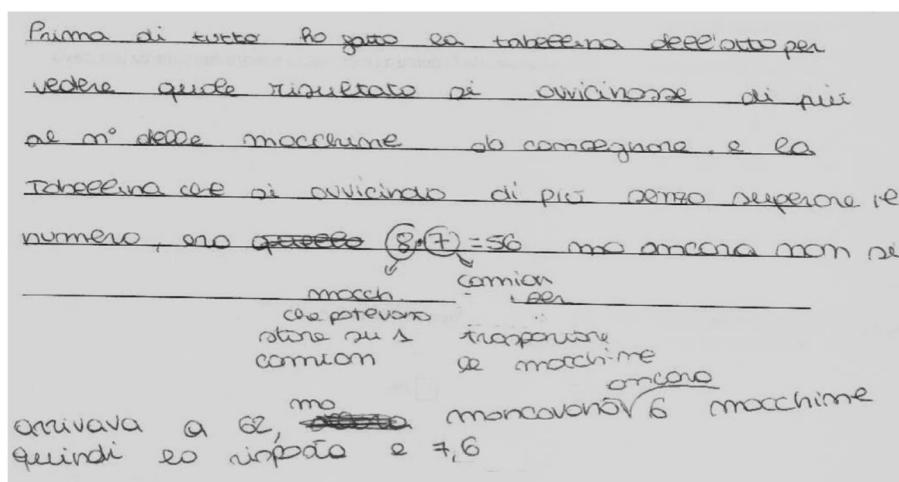 Prima di tutto ho fatto la tabellina dell'otto per
vedere quale risultato si avvicinasse di più
al n° delle macchine da consegnare. e la
Tabellina che si avvicinava di più senza superare il
numero, era quello 8•7=56 ma ancora non si
macch. camion
che potevano per
stare su 1 trasportare
camion le macchine
ancora
arrivava a 62, ma mancavano 6 macchine
quindi la risposta è 7,6